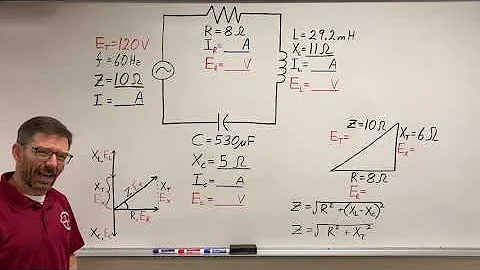 E_T=120V
f=60Hz
Z=10Ω
I=___A
R=8Ω
I_R=___A
E_R=___V
L=29.2mH
X_L=11Ω
I_L=___A
E_L=___V
C=530µF
X_C=5Ω
I_C=___A
E_C=___V
X_L,E_L
X_T
E_X
Z,E_T
X_T
E_X
R,E_R
X_C,E_C
Z=10Ω
E_T=
X_T=6Ω
E_X=
R=8Ω
E_R=
Z=√R²+(X_L-X_C)²
Z=√R²+X_T²